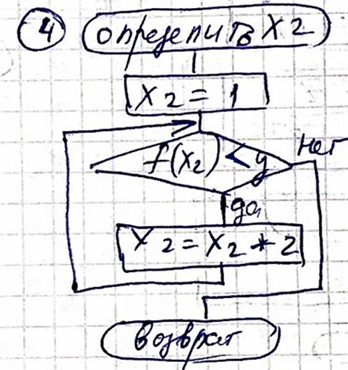 4 определить X2
X2 = 1
f(X2) < y нет
да
X2 = X2 * 2
возврат